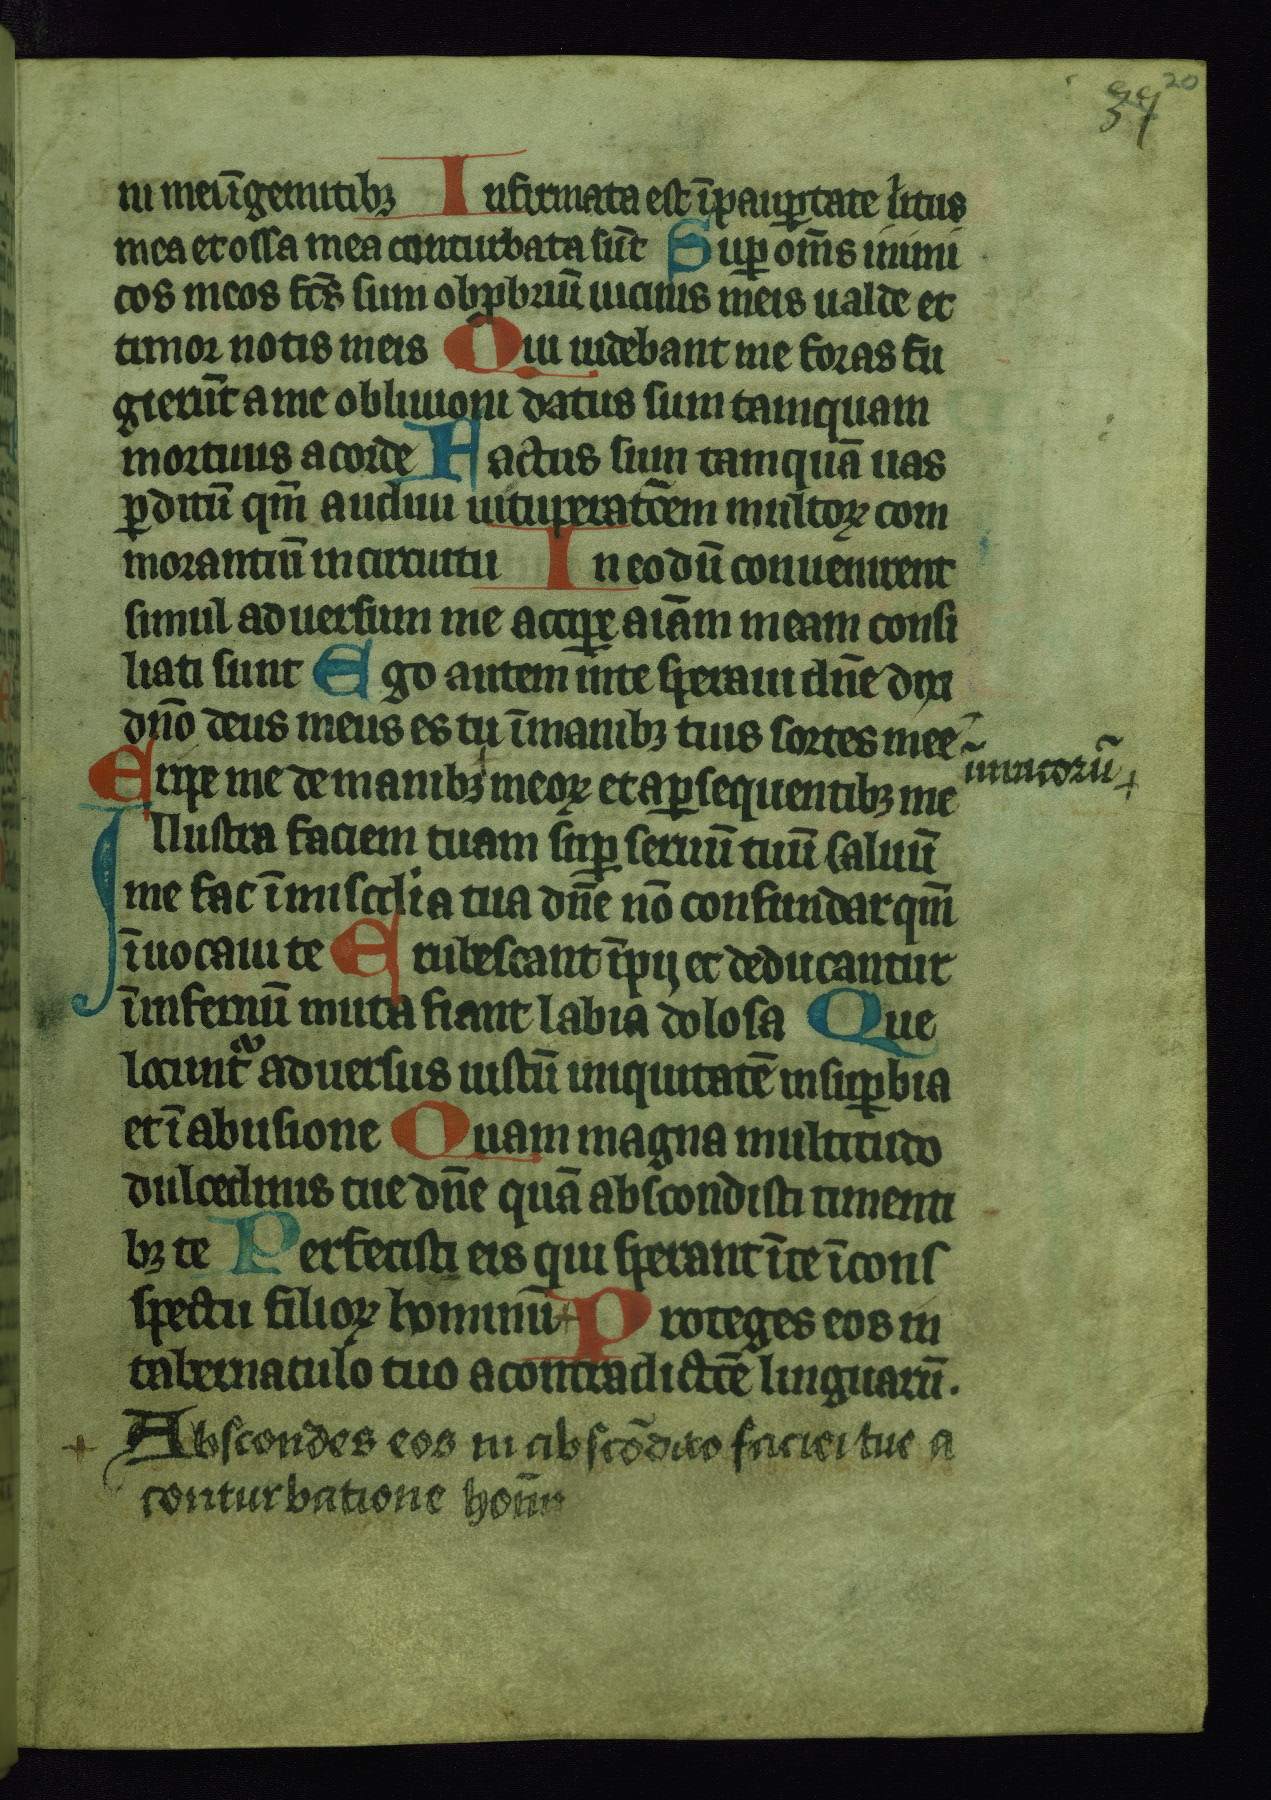 20
39
ni mei ī gemitibꝫ Infirmata est ī paup̄tate ūtus
mea et ossa mea conturbata sūt Sup̄ om̄s inimi
cos meos fc̄s sum obp̄briū uicinis meis ualde et
timor notis meis Qui uidebant me foras fu
gierūt a me obliuioni datus sum tamquam
mortuus a corde Factus sum tamquā uas
ꝑditū qm̄ audiui uituperatōem multoꝝ com
morantiū in circuitu In eo dū conuenirent
simul aduersum me accip̄e aīam meam consi
liati sunt Ego autem īnte speraui dn̄e dixi
dn̄o deus meus es tu ī manibꝫ tuis sortes mee
Eripe me de manibꝫ + meoꝝ et a ꝑsequentibꝫ me
inimicorū +
Illustra faciem tuam suꝑ seruū tuū saluū
me fac ī misc̄dia tua dn̄e nō confundar qm̄
īuocaui te Erubescant īpij et deducantur
ī infernū muta fiant labia dolosa Que
locunt᷑ aduersus iustū iniquitatē in suꝑbia
et ī abusione Quam magna multitudo
dulcedinis tue dn̄e quā abscondisti timenti
bꝫ te Perfecisti eis qui sperant ī te ī cons
spectu filioꝝ hominū + Proteges eos in
tabernaculo tuo a contradictōe linguarū.
+ Abscondes eos in abscōdito faciei tue a
conturbatione hoīm